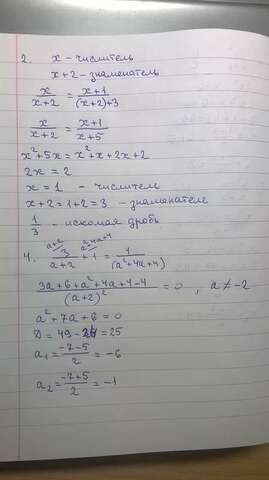 2. x - числитель
x+2 - знаменатель
x/(x+2) = (x+1)/((x+2)+3)
x/(x+2) = (x+1)/(x+5)
x²+5x = x²+x+2x+2
2x = 2
x = 1 - числитель
x+2 = 1+2 = 3 - знаменатель
1/3 - искомая дробь
4. a+2 3/(a+2) + a²+4a+4 1 = 4/(a²+4a+4)
(3a+6+a²+4a+4-4)/(a+2)² = 0, a ≠ -2
a²+7a+6 = 0
D = 49-24 = 25
a₁ = (-7-5)/2 = -6
a₂ = (-7+5)/2 = -1